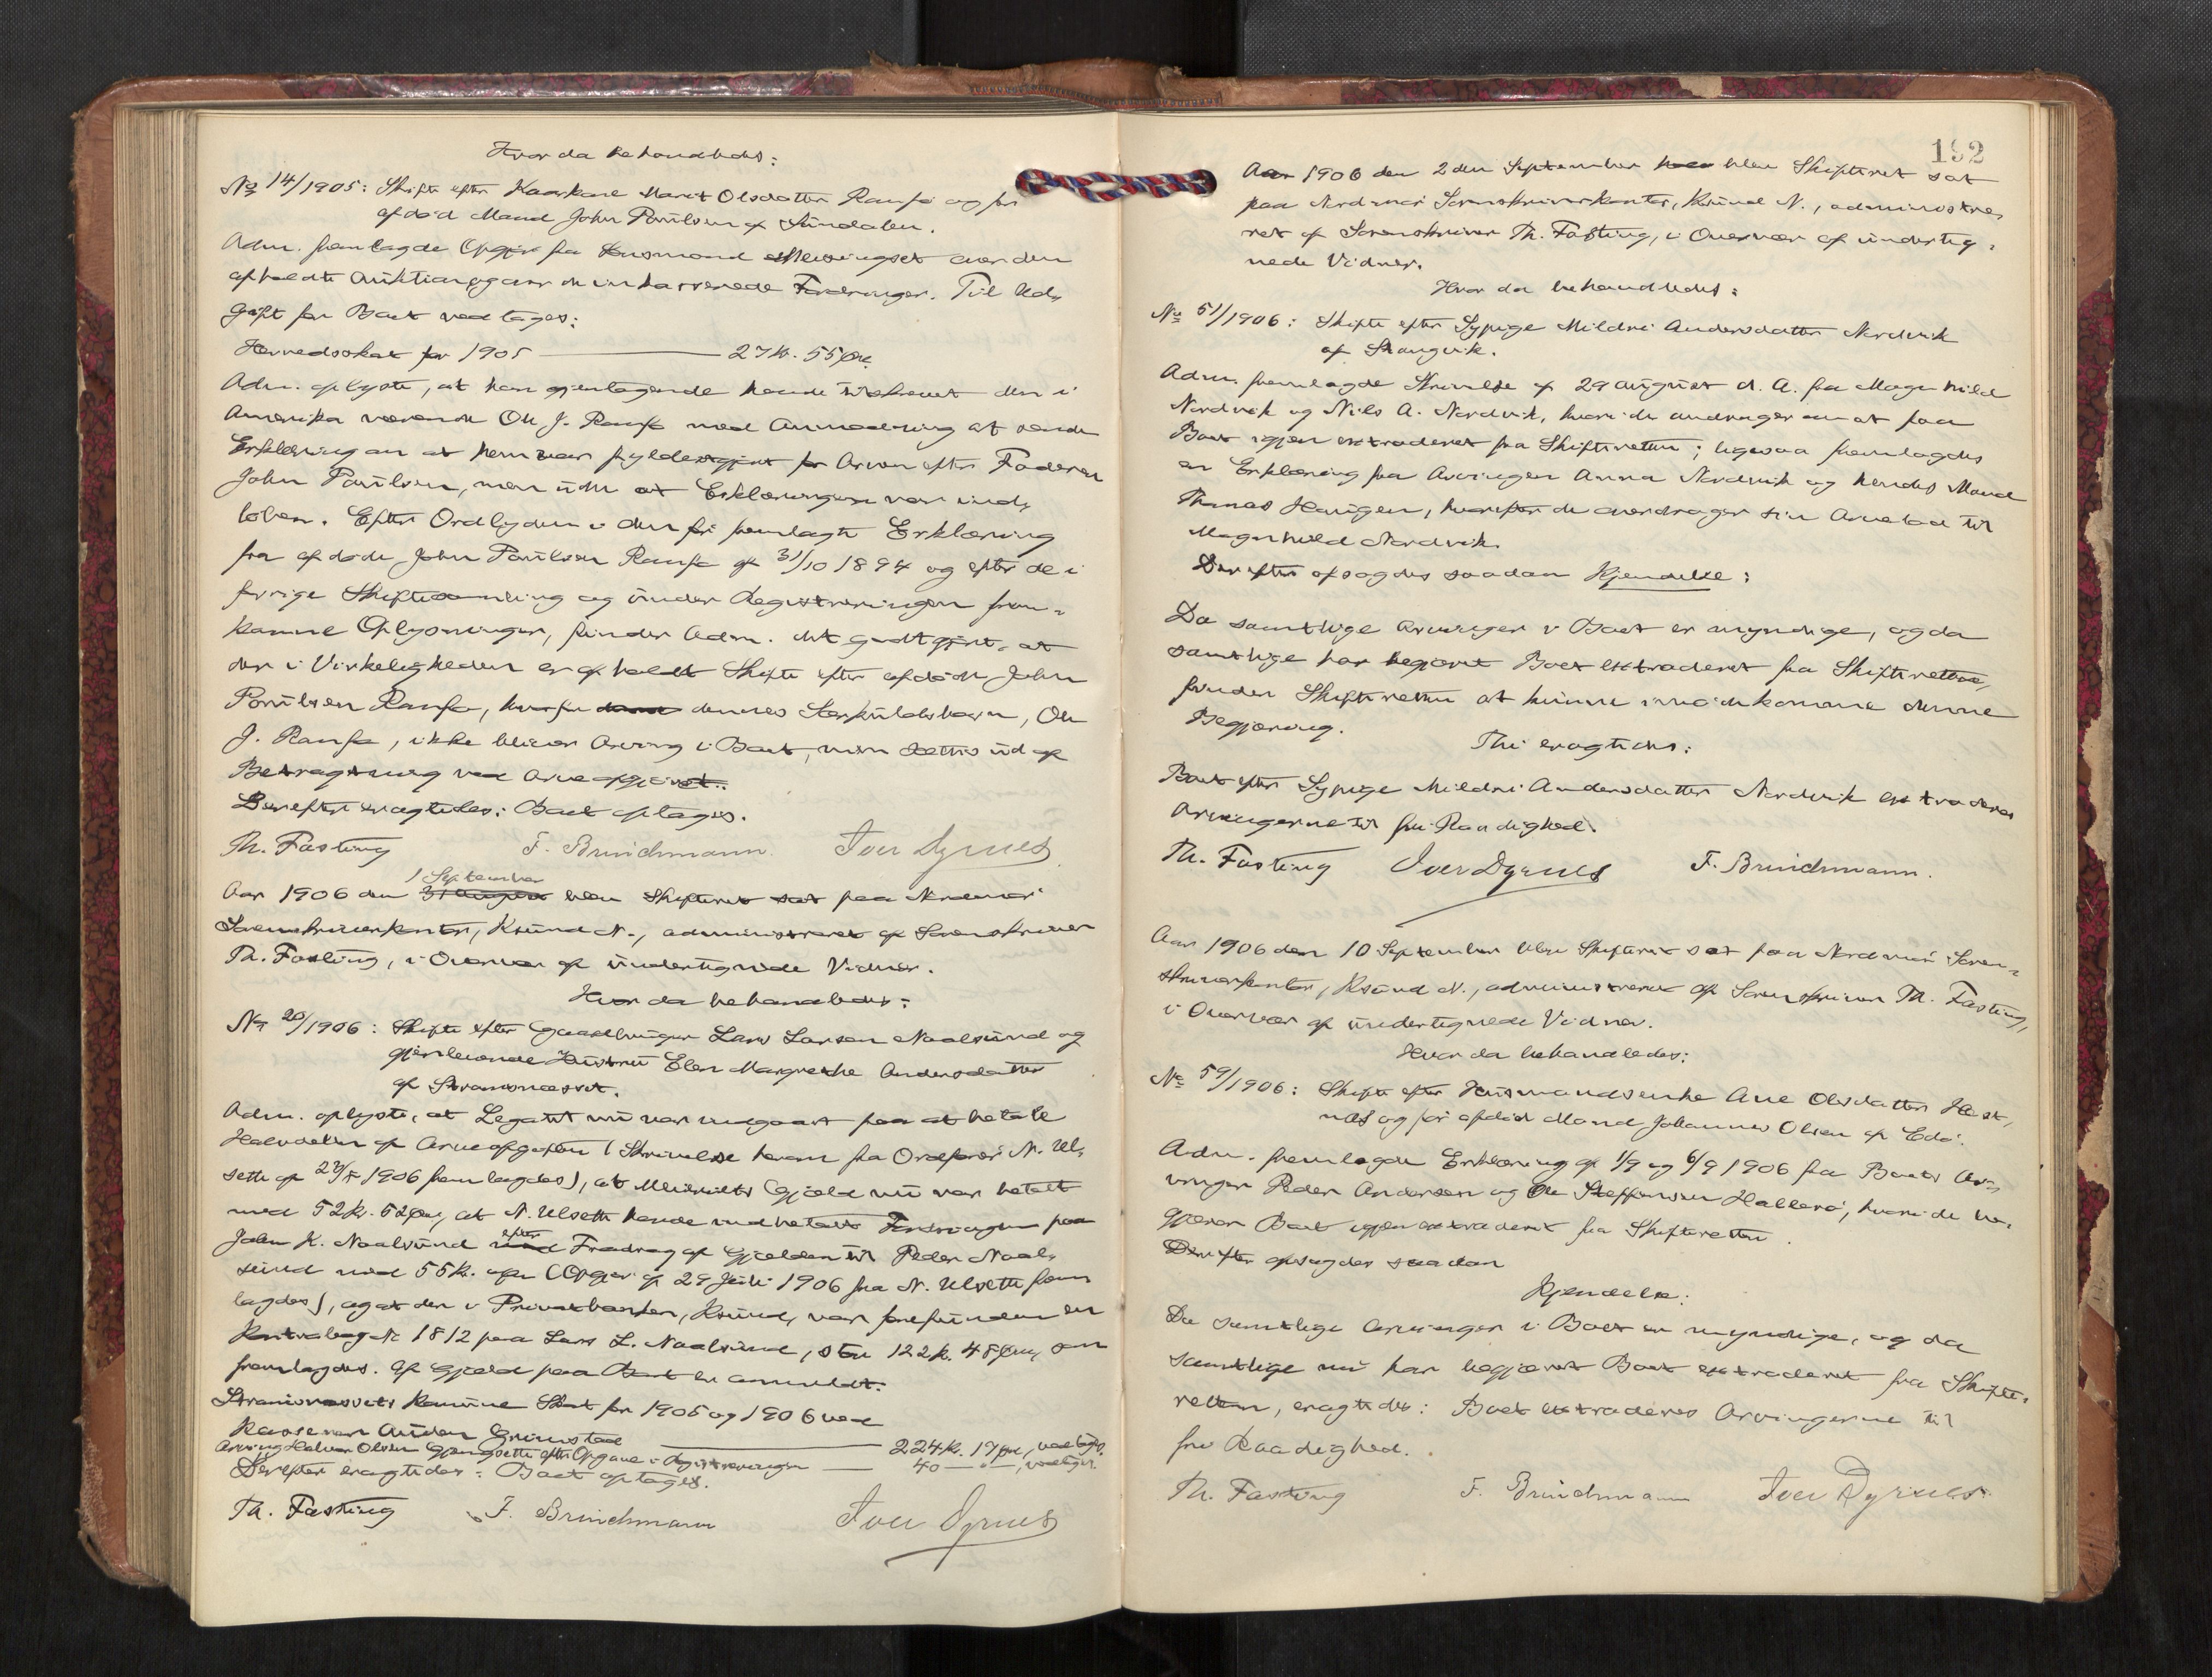 Hvor da behandledes:
No 14/1905: Skifte efter Kaarkone Marit Olsdatter Ranfe og før
afdød Mand John Poulsen af Sundalen.
Adm. fremlagde Opgjør fra Lensmand Meisingset over den
afholdte Auktion og over de inkasserede Fordringer. Til Ud-
gift for Boet vedtages:
Herredsskat for 1905 ——— 27 Kr. 55 Øre.
Adm. oplyste, at han gjentagende havde tilskrevet den i
Amerika værende Ole J. Ranfe med Anmodning at sende
Erklæring om at han var fyldestgjort for Arven efter Faderen
John Poulsen, men uden at Erklæringen var ind-
løben. Efter Ordlyden i den før fremlagte Erklæring
fra afdøde John Poulsen Ranfe af 31/10 1894 og efter de i
forrige Skiftesamling og under Registreringen frem-
komne Oplysninger, finder Adm. det godtgjort, at
der i Virkeligheden er afholdt Skifte efter afdøde John
Poulsen Ranfe, hvorfor dennes Særkuldsbarn, Ole
J. Ranfe, ikke bliver Arving i Boet, men sættes ud af
Betragtning ved Arveopgjøret.
Derefter eragtedes: Boet optages.
Th. Fasting F. Brinchmann. Iver Dyrnes
1 September
Aar 1906 den 31 August blev Skifteret sat paa Nordmøre
Sorenskriverkontor, Ksund N., administreret af Sorenskriver
Th. Fasting, i Overvær af undertegnede Vidner.
Hvor da behandledes:
No 20/1906: Skifte efter Gaardbruger Lars Larsen Naalsund og
gjenlevende Hustru Elen Margrethe Andersdatter
af Stramsnesset.
Adm. oplyste, at Legatet nu var indgaaet paa at betale
Halvdelen af Arveafgiften (Skrivelse herom fra Ordfører N. Ul-
sett af 1906 fremlagdes), at Gjæld nu var betalt
med 52 Kr. 52 Øre, at N. Ulsett havde indbetalt Fordringen paa
John K. Naalsund efter Fradrag af Gjælden til Peder Naal-
sund med 55 Kr. Opgjør af 29 Juli 1906 fra N. Ulsett frem
lagdes), og at der i Privatbanken, Ksund, var forefunden en
Kontrabog No 1812 paa Lars L. Naalsund, stor 122 Kr. 48 Øre, som
fremlagdes. Af Gjæld paa Boet er anmeldt:
Stramsnessets Kommune Skat for 1905 og 1906 ved
Kasserer Anders Grimstad ——— 224 Kr. 17 Øre, vedtages.
Arving Halvor Olsen Gjengsett efter Opgave i Registreringen — 40 — " —, vedtages.
Derefter eragtedes: Boet optages.
Th. Fasting F. Brinchmann Iver Dyrnes
192
Aar 1906 den 2den September blev Skifteret sat
paa Nordmøre Sorenskriverkontor, Ksund N., administre-
ret af Sorenskriver Th. Fasting, i Overvær af underteg-
nede Vidner.
Hvor da behandledes:
No 51/1906: Skifte efter Sypige Mildri Andersdatter Nordvik
af Stangvik.
Adm. fremlagde Skrivelse af 29 August d. A. fra Magnhild
Nordvik og Nils A. Nordvik, hvori de andrager om at faa
Boet igjen extraderet fra Skifteretten; ligesaa fremlagdes
en Erklæring fra Arvingen Anna Nordvik og hendes Mand
Thomas Haugen, hvorefter de overdrager sin Arvelod til
Magnhild Nordvik.
Derefter afsagdes saadan Kjendelse:
Da samtlige Arvinger i Boet er myndige, og da
samtlige har begjæret Boet extraderet fra Skifteretten,
finder Skifteretten at kunne imødekomme denne
Begjæring.
Thi eragtedes:
Boet efter Sypige Mildri Andersdatter Nordvik extraderes
Arvingerne til fri Raadighed.
Th. Fasting Iver Dyrnes F. Brinchmann.
Aar 1906 den 10 September blev Skifteret sat paa Nordmøre Soren-
skriverkontor, Ksund N., administreret af Sorenskriver Th. Fasting,
i Overvær af undertegnede Vidner.
Hvor da behandledes:
No 59/1906: Skifte efter Husmandsenke Ane Olsdatter Hest-
nes og før afdød Mand Johannes Olsen af Edø.
Adm. fremlagde Erklæring af 1/9 og 6/9 1906 fra Boets Ar-
vinger Peder Andersen og Ole Steffensen Hallerø, hvori de be-
gjærer Boet igjen extraderet fra Skifteretten.
Derefter afsagdes saadan
Kjendelse:
Da samtlige Arvinger i Boet er myndige, og da
samtlige nu har begjæret Boet extraderet fra Skifte-
retten, eragtedes: Boet extraderes Arvingerne til
fri Raadighed.
Th. Fasting F. Brinchmann Iver Dyrnes